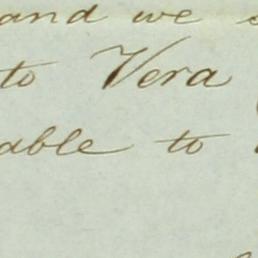 and we
to Vera
able to